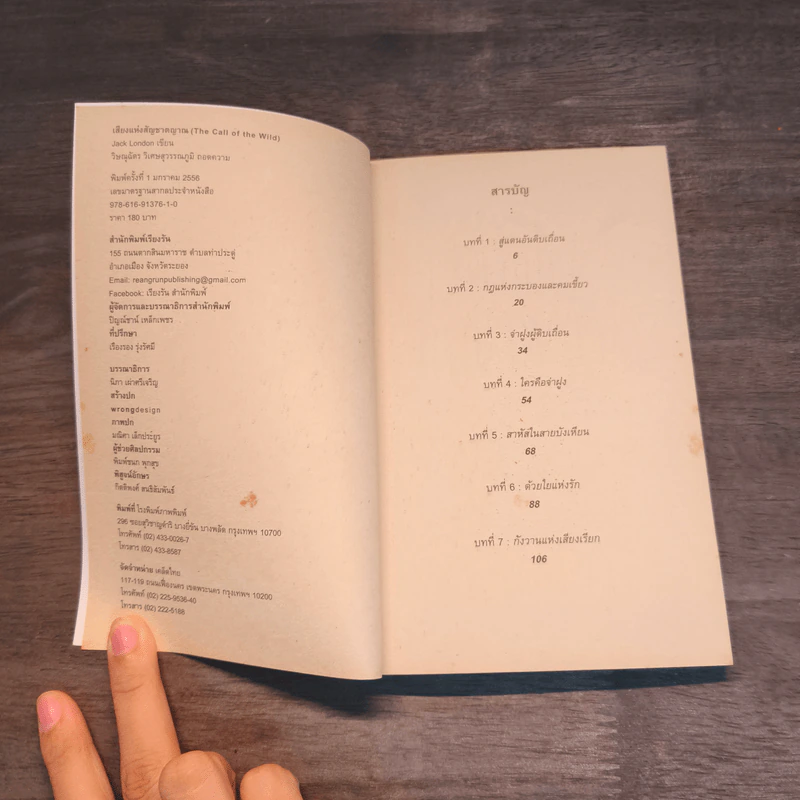 เสียงแห่งสัญชาตญาณ (The Call of the Wild)
Jack London เขียน
วิษณุฉัตร วิเศษสุวรรณภูมิ ถอดความ
พิมพ์ครั้งที่ 1 มกราคม 2556
เลขมาตรฐานสากลประจำหนังสือ
978-616-91376-1-0
ราคา 180 บาท
สำนักพิมพ์เรียงรัน
155 ถนนตากสินมหาราช ตำบลท่าประดู่
อำเภอเมือง จังหวัดระยอง
Email: reangrunpublishing@gmail.com
Facebook: เรียงรัน สำนักพิมพ์
ผู้จัดการและบรรณาธิการสำนักพิมพ์
ปิญณ์ชาน์ เหล็กเพชร
ที่ปรึกษา
เรืองรอง รุ่งรัศมี
บรรณาธิการ
นิภา เผ่าศรีเจริญ
สร้างปก
wrongdesign
ภาพปก
มณิศา เล็กประยูร
ผู้ช่วยศิลปกรรม
พิมพ์ชนก พุกสุข
พิสูจน์อักษร
กิตติพงศ์ สนธิสัมพันธ์
พิมพ์ที่ โรงพิมพ์ภาพพิมพ์
296 ซอยอรุณอมรินทร์ บางยี่ขัน บางพลัด กรุงเทพฯ 10700
โทรศัพท์ (02) 433-0026-7
โทรสาร (02) 433-8587
จัดจำหน่าย เคล็ดไทย
117-119 ถนนเฟื่องนคร เขตพระนคร กรุงเทพฯ 10200
โทรศัพท์ (02) 225-9536-40
โทรสาร (02) 222-5188
สารบัญ
:
บทที่ 1 : สู่แดนอันดิบเถื่อน
6
บทที่ 2 : กฎแห่งกระบองและคมเขี้ยว
20
บทที่ 3 : จ่าฝูงผู้ดิบเถื่อน
34
บทที่ 4 : ใครคือจ่าฝูง
54
บทที่ 5 : สาหัสในสายบังเหียน
68
บทที่ 6 : ด้วยใยแห่งรัก
88
บทที่ 7 : กังวานแห่งเสียงเรียก
106